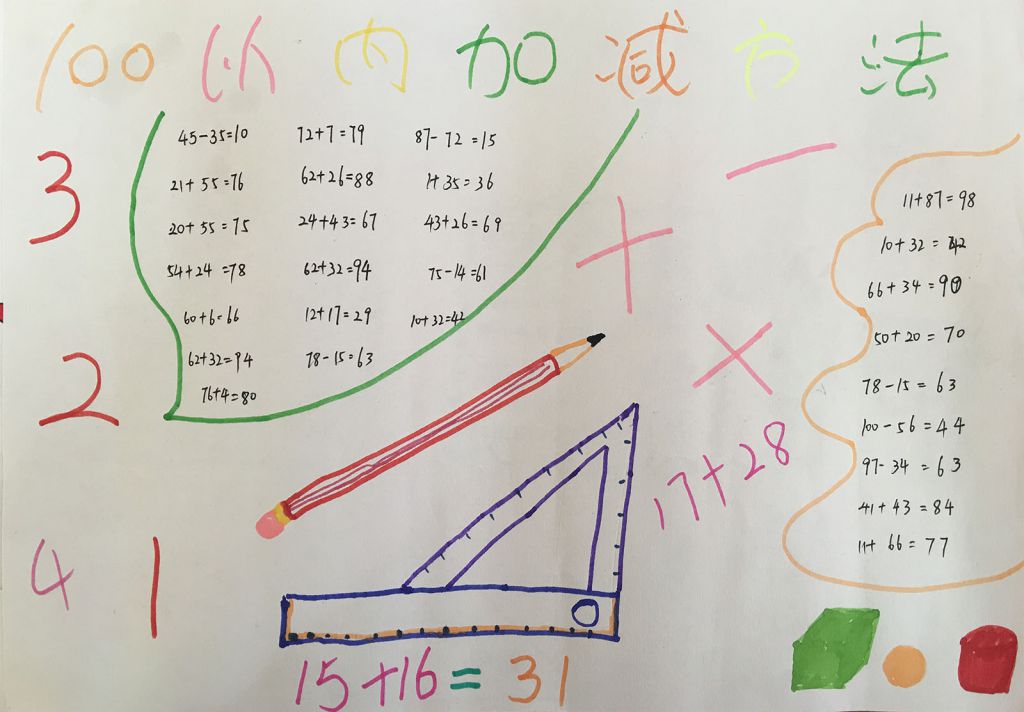 100以内加减方法
3
45-35=10 72+7=79 87-72=15
21+55=76 62+26=88 1+35=36
20+55=75 24+43=67 43+26=69
54+24=78 62+32=94 75-14=61
60+6=66 12+17=29 10+32=42
62+32=94 78-15=63
76+4=80
−
+
×
11+87=98
10+32=42
66+34=90
50+20=70
78-15=63
100-56=44
97-34=63
41+43=84
11+66=77
2
17+28
4 1
15+16=31